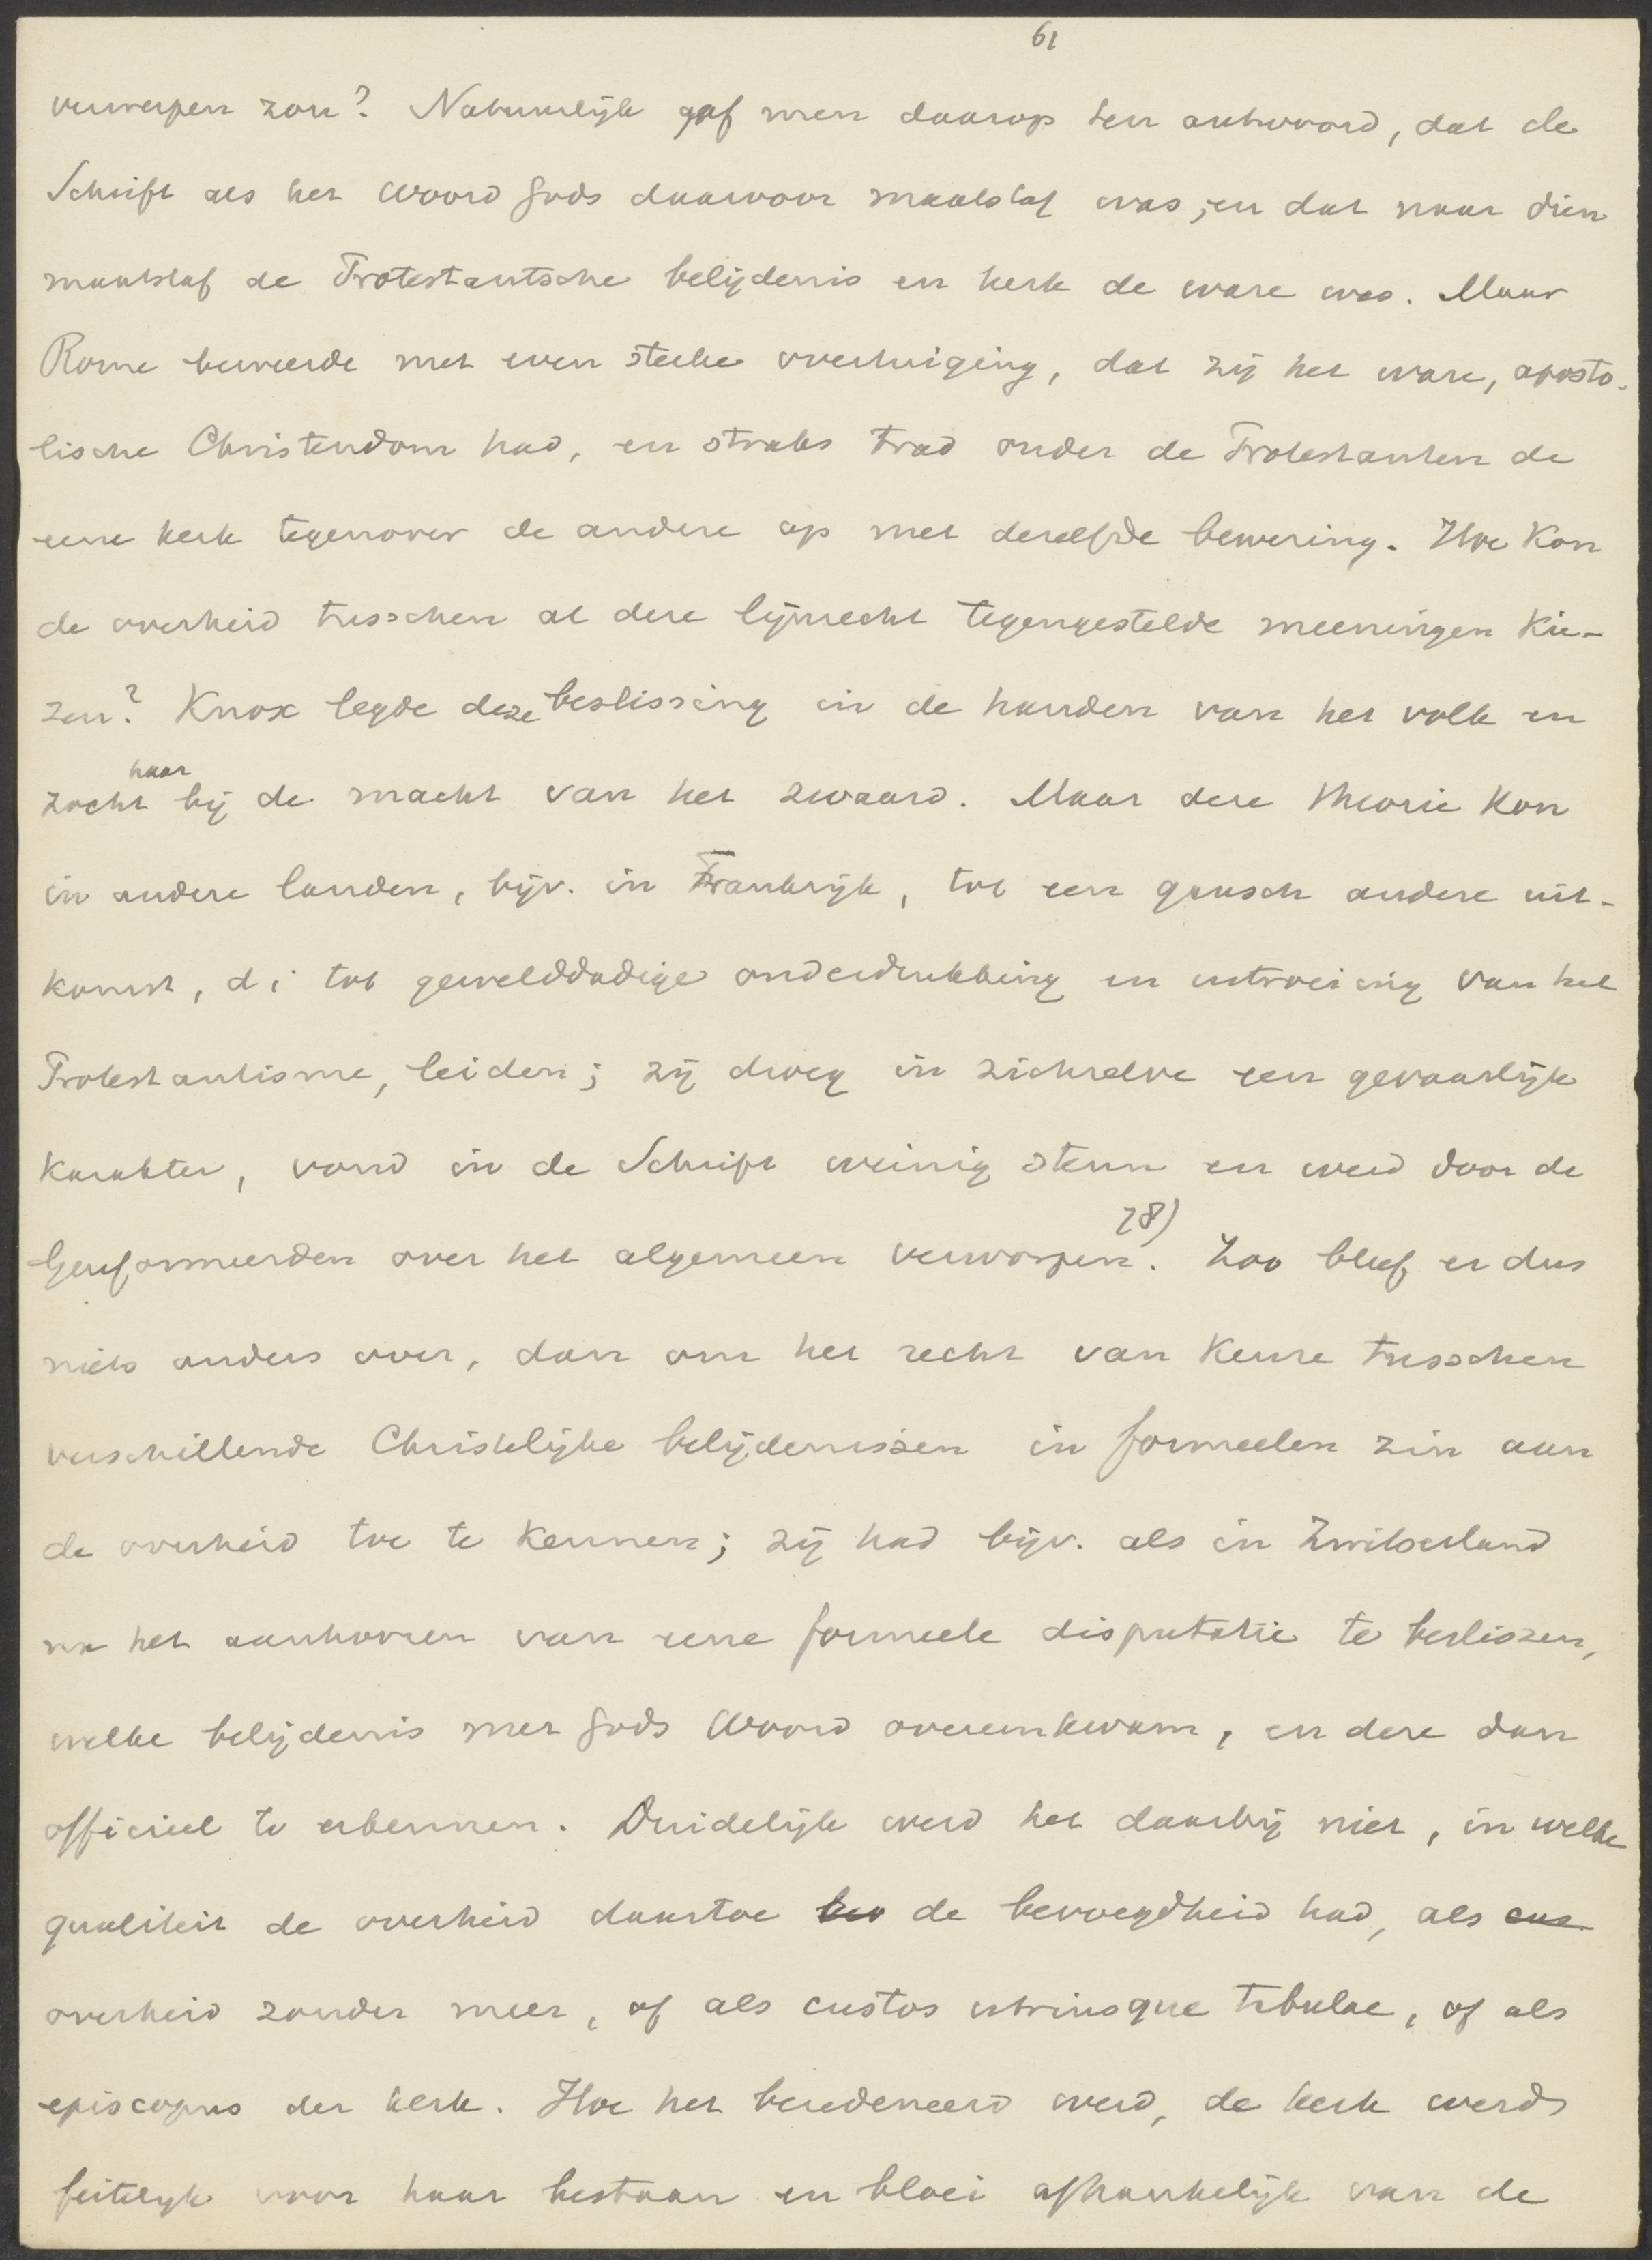 61
verwerpen zou? Natuurlijk gaf men daarop ten antwoord, dat de
Schrift als het Woord Gods daarvoor maatstaf was, en dat naar dien
maatstaf de Protestantsche belijdenis en kerk de ware was. Maar
Rome beweerde met even sterke overtuiging, dat zij het ware, aposto-
lische Christendom had, en straks trad onder de Protestanten de
eene kerk tegenover de andere op met dezelfde bewering. Hoe kon
de overheid tusschen al deze lijnrecht tegengestelde meeningen kie-
zen? Knox legde deze beslissing in de handen van het volk en
zocht haar bij de macht van het zwaard. Maar deze theorie kon
in andere landen, bijv. in Frankrijk, tot een gansch andere uit-
komst, d i tot gewelddadige onderdrukking en uitroeiing van het
Protestantisme, leiden; zij droeg in zichzelve een gevaarlijk
karakter, vond in de Schrift weinig steun en werd door de
Gereformeerden over het algemeen verworpen 78). Zoo bleef er dus
niets anders over, dan om het recht van keuze tusschen
verschillende Christelijke belijdenissen in formeelen zin aan
de overheid toe te kennen; zij had bijv. als in Zwitserland
na het aanhooren van eene formeele disputatie te beslissen,
welke belijdenis met Gods Woord overeenkwam, en deze dan
officieel te erkennen. Duidelijk werd het daarbij niet, in welke
qualiteit de overheid daartoe de bevoegdheid had, als
overheid zonder meer, of als custos utriusque tabulae, of als
episcopus der kerk. Hoe het beredeneerd werd, de kerk werd
feitelijk voor haar bestaan en bloei afhankelijk van de